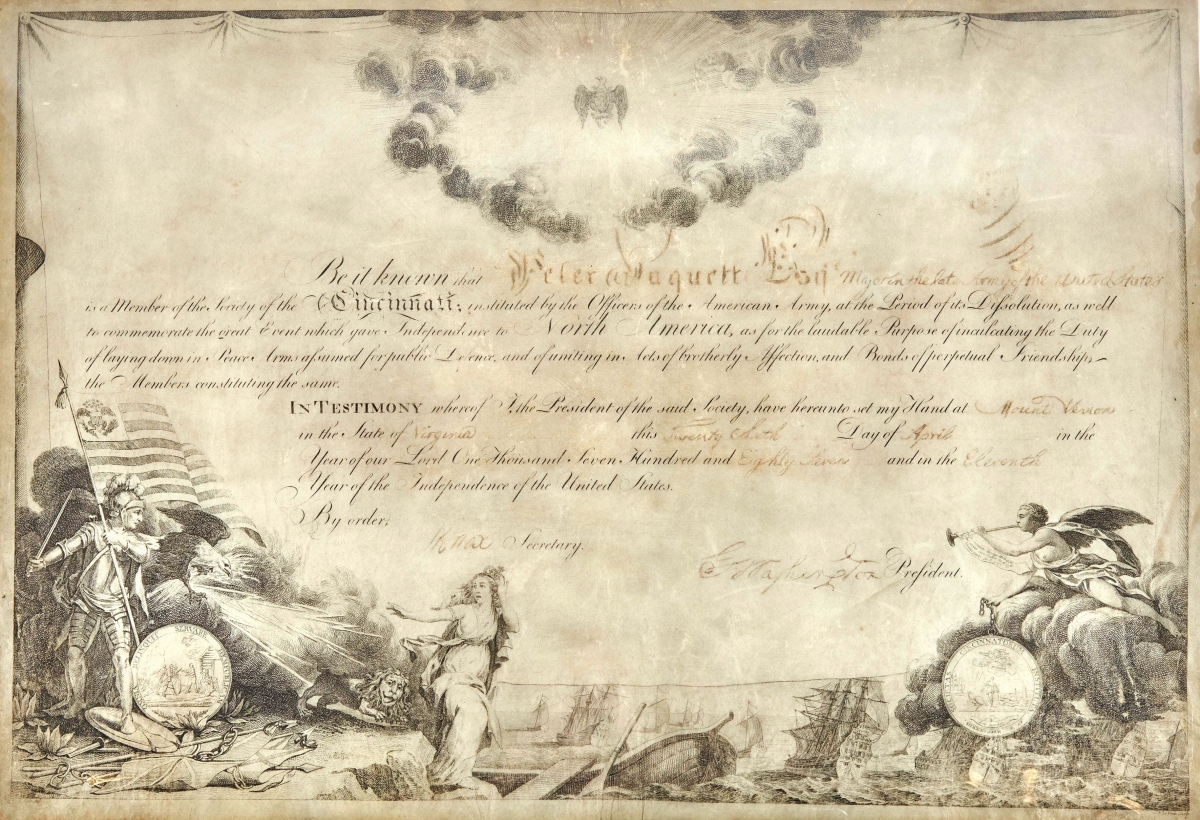 Be it known that Peter Jaquett Esqr Major in the late Army of the United States
is a Member of the Society of the Cincinnati; instituted by the Officers of the American Army, at the Period of its Dissolution, as well
to commemorate the great Event which gave Independence to North America, as for the laudable Purpose of inculcating the Duty
of laying down in Peace Arms assumed for public Defence, and of uniting in Acts of brotherly Affection, and Bonds of perpetual Friendship,
the Members constituting the same.
IN TESTIMONY whereof I, the President of the said Society, have hereunto set my Hand at Mount Vernon
in the State of Virginia this Twenty Day of April in the
Year of our Lord One Thousand Seven Hundred and Eighty Seven and in the Eleventh
Year of the Independence of the United States.
By order,
Knox Secretary.
G Washington President.